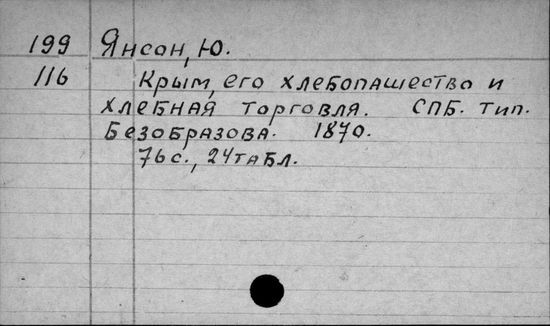 199 Янсон, Ю.
116 Крым, его хлебопашество и
хлебная торговля. СПБ. тип.
Безобразова. 1870.
76 с., 24 табл.